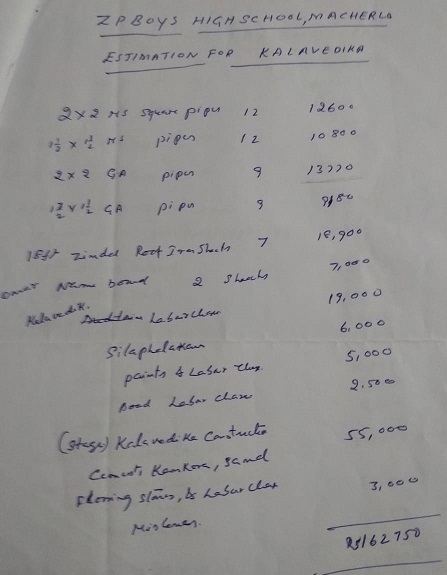 ZP BOYS HIGH SCHOOL, MACHERLA
ESTIMATION FOR KALAVEDIKA
2x2 MS Square pipes 12 12600
1½ x 1½ MS pipes 12 10800
2x2 GA pipes 9 13770
1½ x 1½ GA pipes 9 9180
Jindal Roof Iron Sheets 7 18,900
Name board 2 Sheets 7,000
Kalavedik. Labur chars 19,000
Silaphalakam 6,000
paints & Labur Chas. 5,000
Labur chars 2,500
(Stage) Kalavedika Constructio 55,000
Cements Kankara, sand
floring stones, & Labur Char
3,000
162750